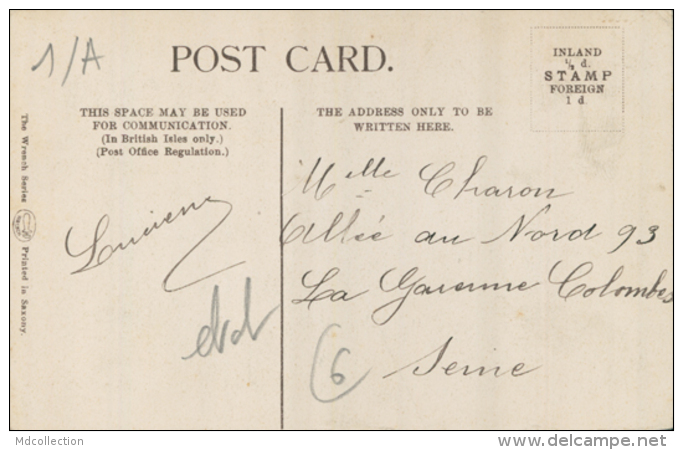 1/A
POST CARD.
INLAND
½ d.
STAMP
FOREIGN
1 d
THIS SPACE MAY BE USED
FOR COMMUNICATION.
(In British Isles only.)
(Post Office Regulation.)
THE ADDRESS ONLY TO BE
WRITTEN HERE.
The Wrench Series
Printed in Saxony.
Lucienne
Melle Charon
Allée du Nord 93
La Garenne Colombes
Seine
(6
Mdcollection
www.delcampe.net